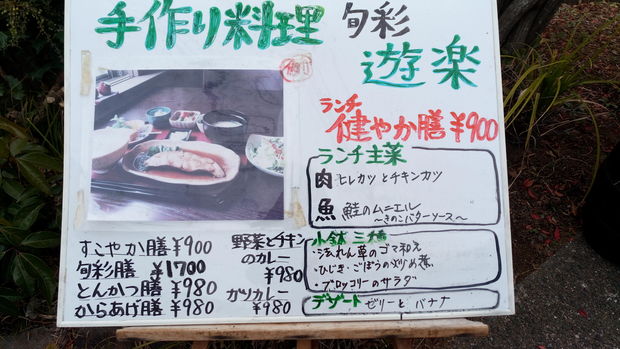 手作り料理 旬彩
遊楽
ランチ
健やか膳 ¥900
ランチ主菜
肉 ヒレカツとチキンカツ
魚 鮭のムニエル
〜きのこバターソース〜
小鉢 三種
・ほうれん草のゴマ和え
・ひじき・ごぼうの炒め煮
・ブロッコリーのサラダ
デザート ゼリーと バナナ
すこやか膳 ¥900
旬彩膳 ¥1700
とんかつ膳 ¥980
からあげ膳 ¥980
野菜とチキン
のカレー
¥980
カツカレー
¥980